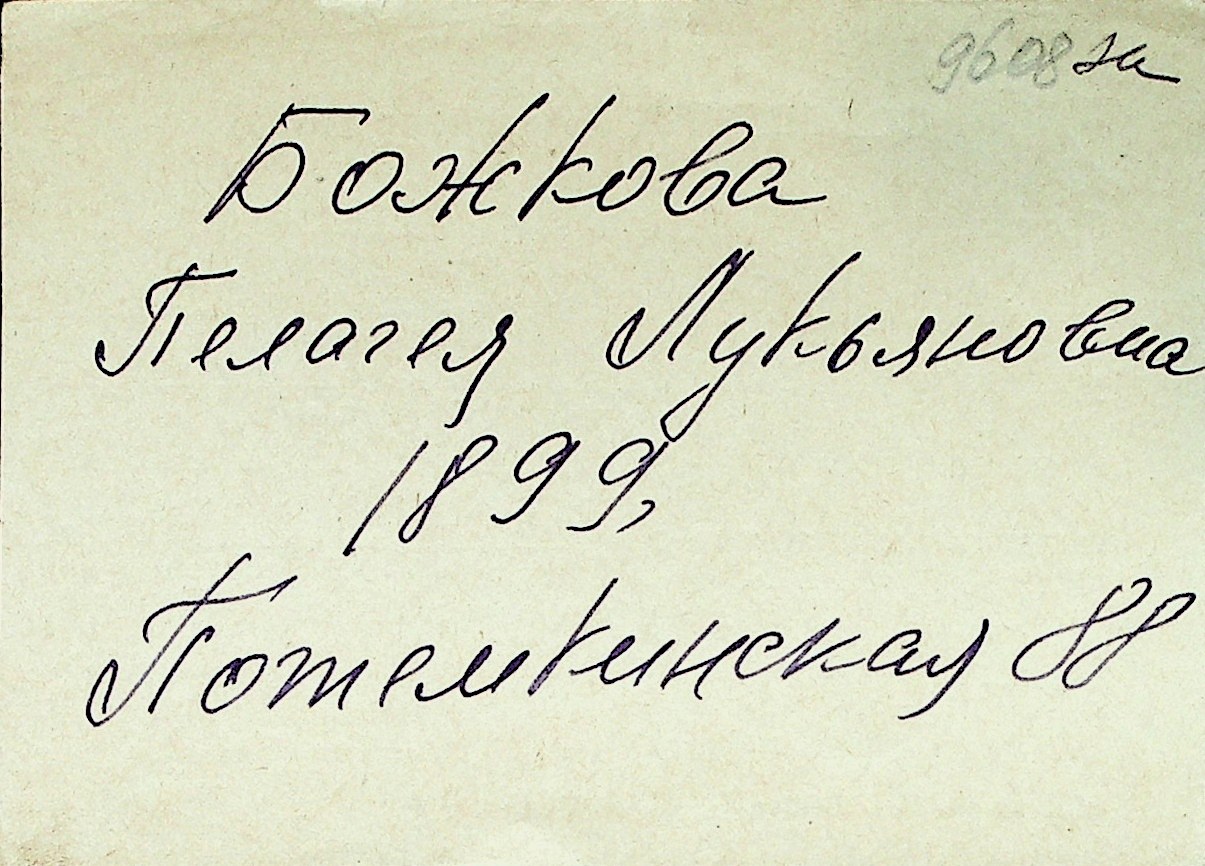 9608 за
Божкова
Пелагея Лукьяновна
1899,
Потемкинская 88